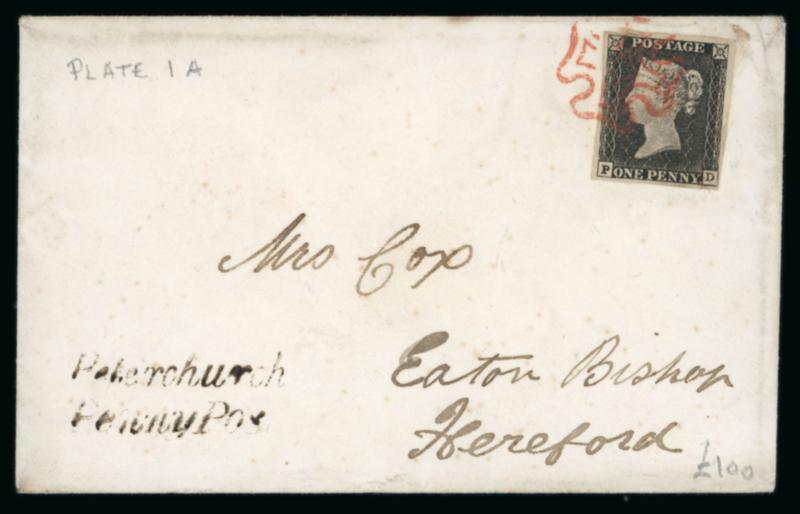 PLATE 1A
POSTAGE
P ONE PENNY D
Mrs Cox
Eaton Bishop
Hereford
Peterchurch
Penny Pos
£100